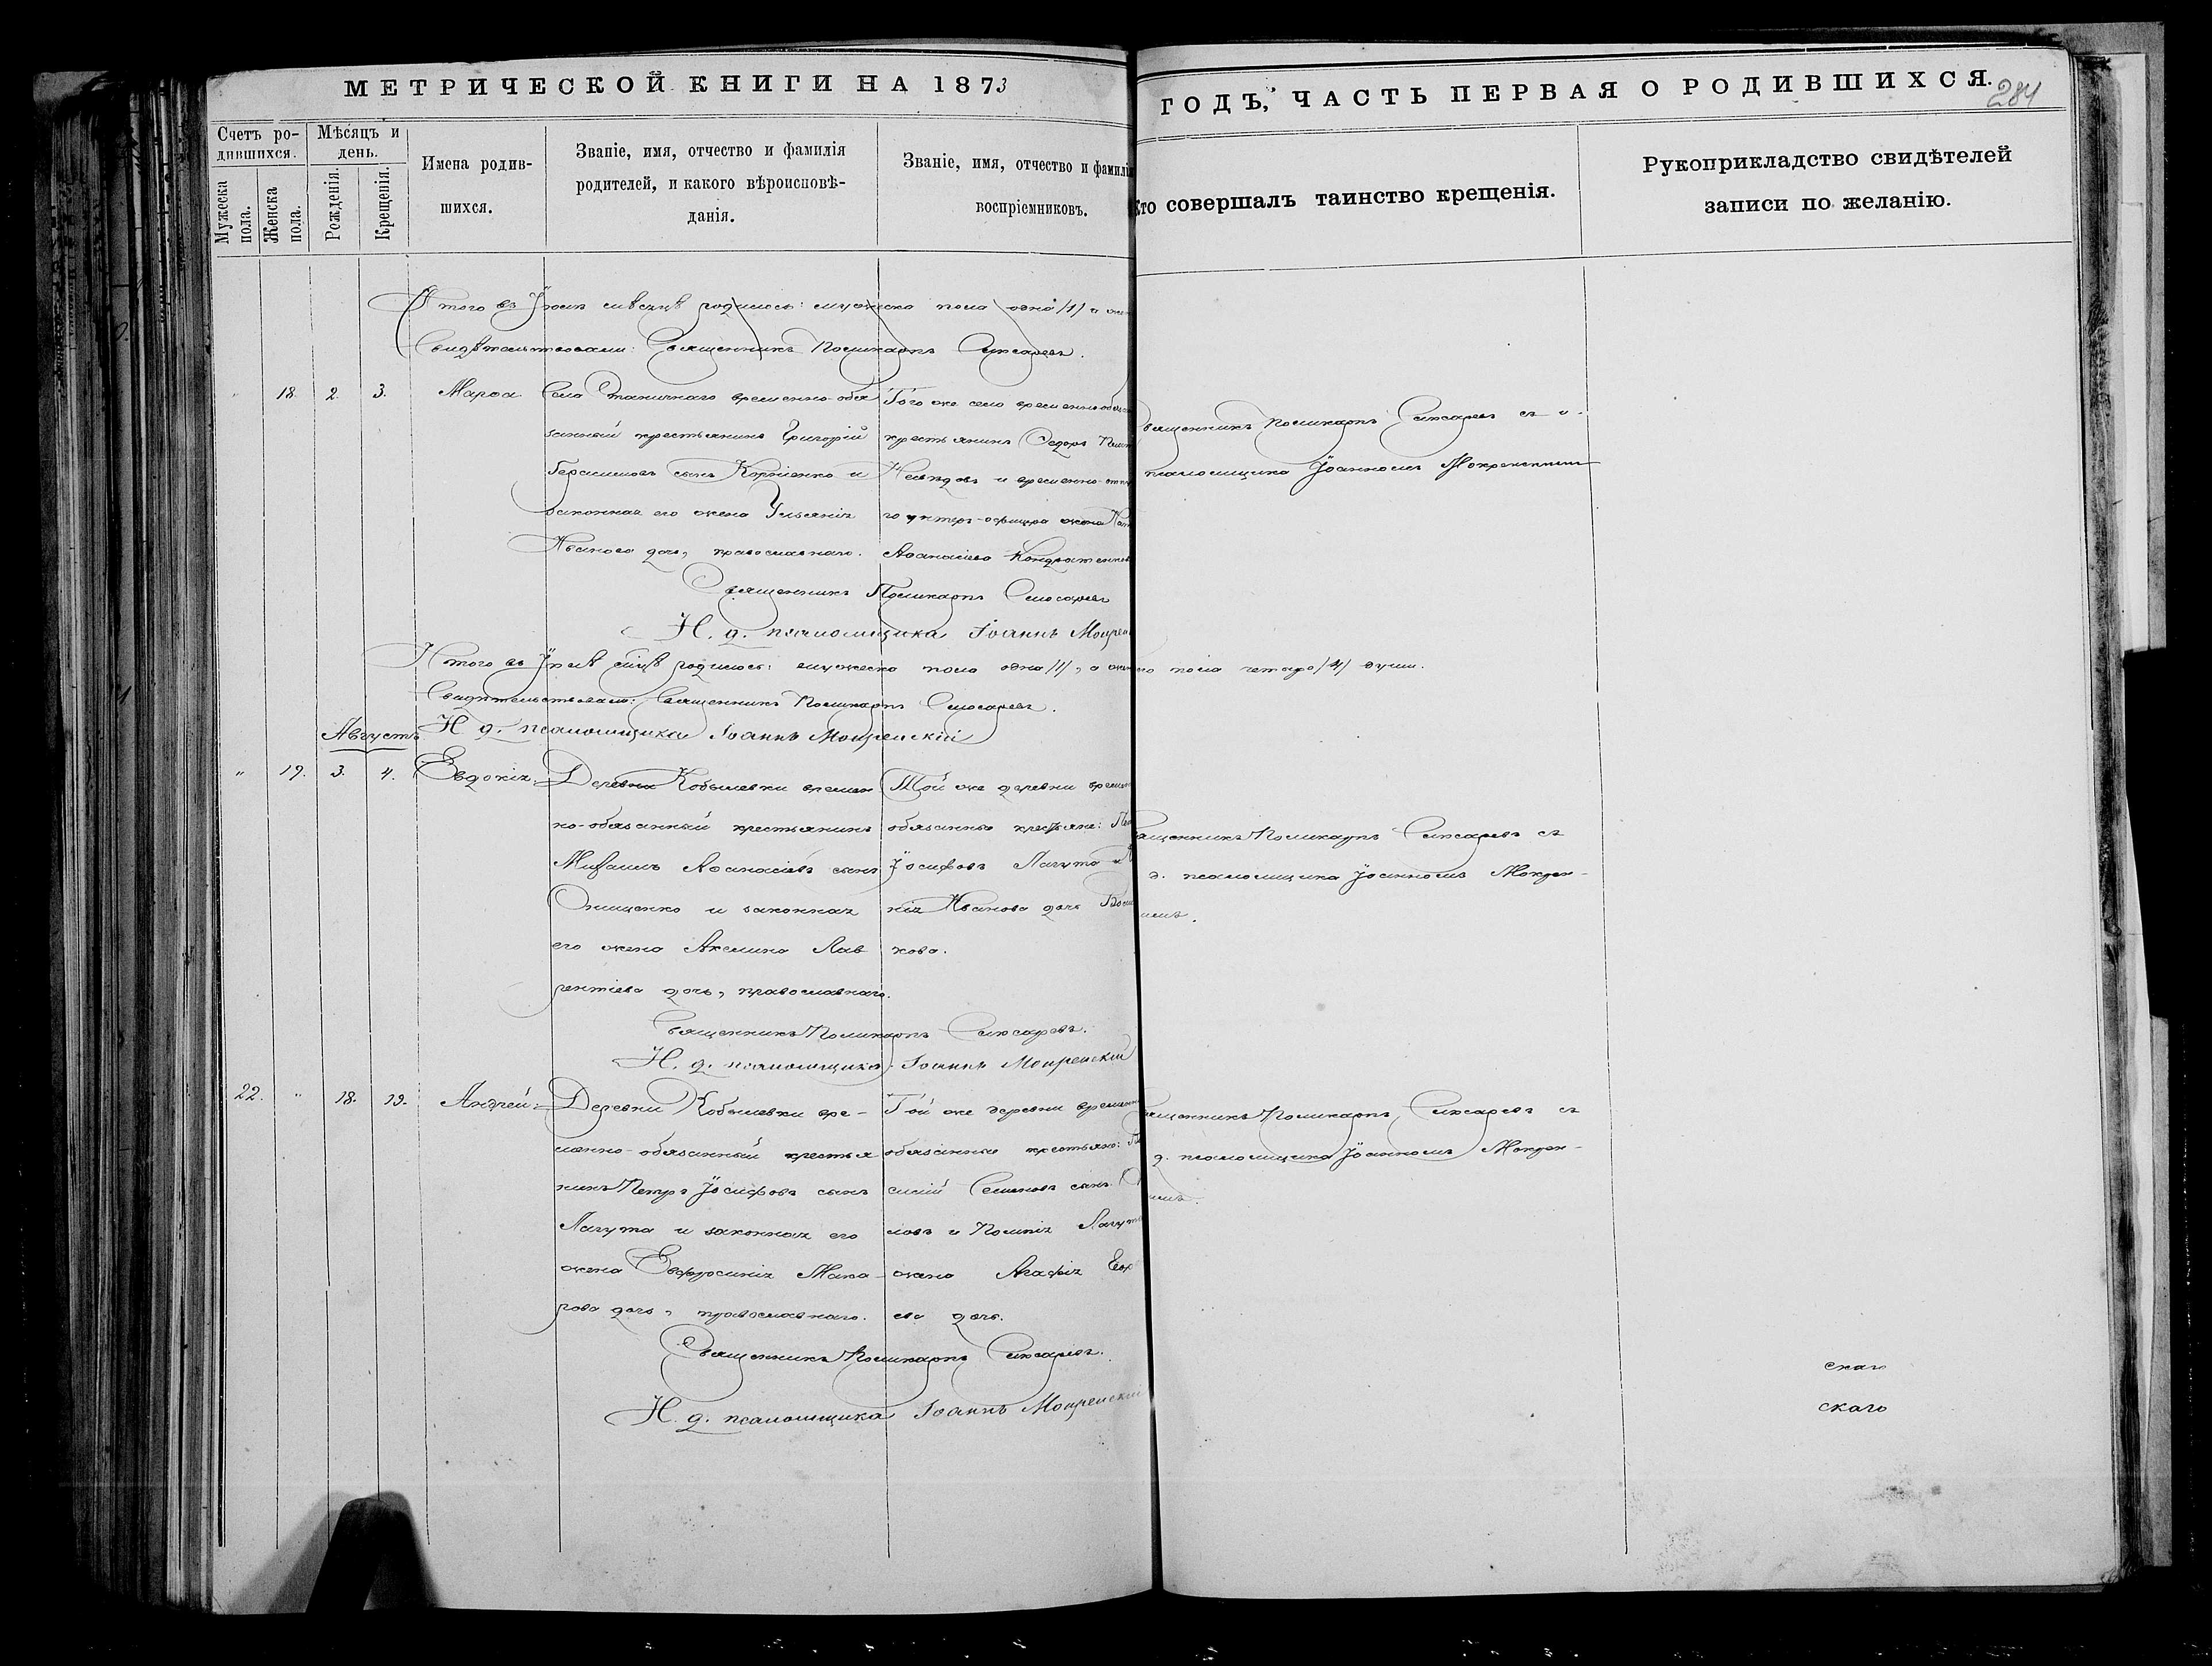 МЕТРИЧЕСКОЙ КНИГИ НА 1873
ГОДЪ, ЧАСТЬ ПЕРВАЯ О РОДИВШИХСЯ.
284
Счетъ ро-
дившихся.
Мужеска
пола.
Женска
пола.
Мѣсяцъ и
день.
Рожденія.
Крещенія.
Имена родив-
шихся.
Званіе, имя, отчество и фамилія
родителей, и какого вѣроисповѣ-
данія.
Званіе, имя, отчество и фамилія
воспріемниковъ.
Кто совершалъ таинство крещенія.
Рукоприкладство свидѣтелей
записи по желанію.
Итого въ мѣсяцѣ родилось: мужеска пола одна /1/ а
Свидѣтельствовали: Священникъ Поликарпъ Слюсаревъ.
" 18. 2. 3.
Марѳа
Села временно-обя
занный крестьянинъ Григорій
Герасимовъ сынъ Корніенко и
законная его жена Ульянія
Иванова дочь, православнаго.
Того же села временно-обяз
крестьянинъ Ѳедоръ
и временно-отп
го унтеръ-офицера жена
Аѳанасіева
Священникъ Поликарпъ Слюсаревъ съ и.
псаломщика Іоанномъ
Священникъ Поликарпъ Слюсаревъ
И. д. псаломщика Іоаннъ
Итого въ Іюлѣ мѣсяцѣ родилось: мужеска пола одна /1/, а женско пола четыре /4/ души.
Свидѣтельствовали: Священникъ Поликарпъ Слюсаревъ.
И. д. псаломщика Іоаннъ
Августъ
" 19. 3. 4.
Евдокія.
Деревни Кобылевки времен
но-обязанный крестьянинъ
Михаилъ Аѳанасіевъ сынъ
Онищенко и законная
его жена Акелина Лав
рентіева дочь, православнаго.
Той же деревни времен
обязанные крестьяне:
Іосифовъ Лагута и
нія Иванова дочь
кова.
Священникъ Поликарпъ Слюсаревъ съ
д. псаломщика Іоанномъ
Священникъ Поликарпъ Слюсаревъ.
И. д. псаломщика Іоаннъ
22. " 18. 19.
Андрей.
Деревни Кобылевки вре-
менно-обязанный крестья
нинъ Петръ Іосифовъ сынъ
Лагута и законная его
жена Евфросинія Мака
рова дочь, православнаго.
Той же деревни временно
обязанные крестьяне:
силій Семеновъ сынъ
ловъ и Лагута
жена Агафія
ева дочь.
Священникъ Поликарпъ Слюсаревъ съ
д. псаломщика Іоанномъ
Священникъ Поликарпъ Слюсаревъ.
И. д. псаломщика Іоаннъ
скаго
скаго